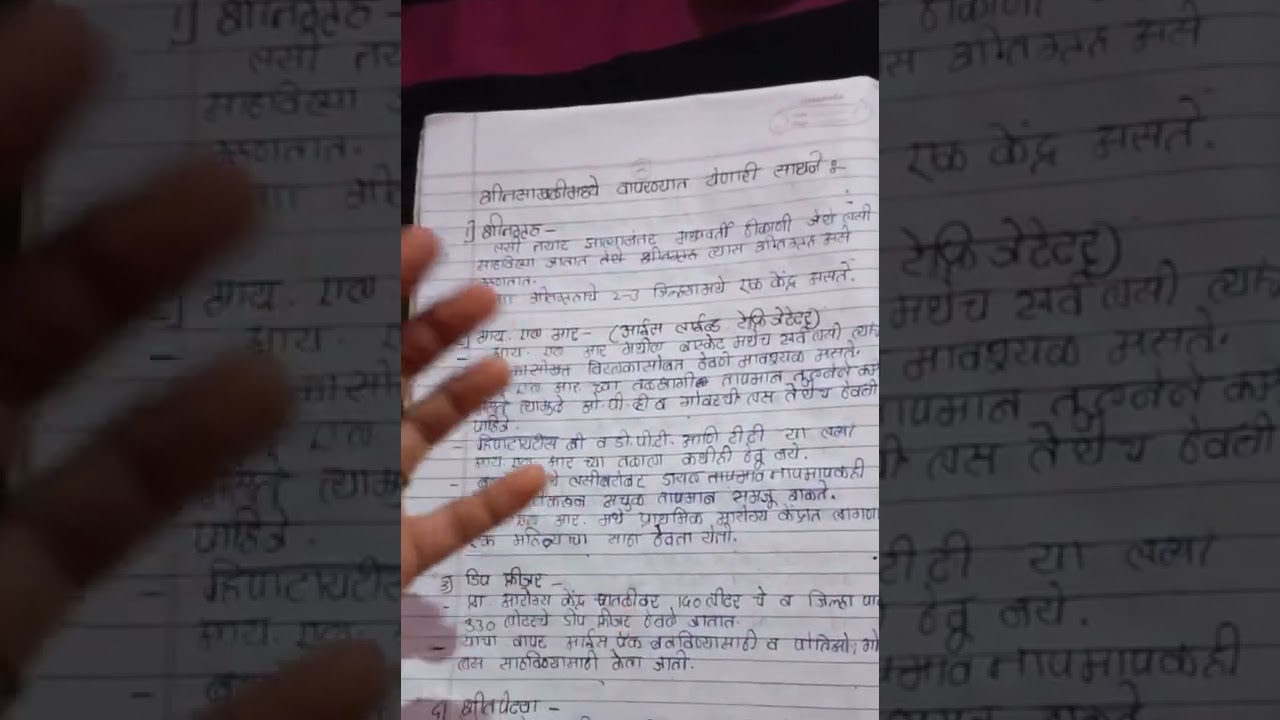 शीतसाखळीमध्ये वापरण्यात येणारी साधने :-
1) शीतगृह -
लसी तयार झाल्यानंतर मध्यवर्ती ठिकाणी जेथे लसी
साठविल्या जातात तेथे शीतगृह त्यास शीतगृह असे
म्हणतात.
शीतगृहाचे 2-3 जिल्ह्यामध्ये एक केंद्र असते.
आय. एल आर - (आईस लाईन्ड रेफ्रिजेरेटर)
- आय. एल आर मधील बास्केट मधेच सर्व लसी
विरलकासोबत ठेवणे आवश्यक असते.
एल आर च्या तळाशी तापमान तुलनेले
त्यामुळे ओ.पी.व्ही व गोवरची लस तेथेच ठेवली
पाहिजे.
- हिपाटायटीस बी व डी.पी.टी. आणि टीटी या लसी
आय. एल आर च्या तळाला कधीही ठेवू नये.
- लसीबरोबर डायल तापमापकही
अचुक तापमान समजू शकते.
आर. मधे प्राथमिक आरोग्य केंद्रात लागणा
एक महिन्याचा साठा ठेवता येतो.
3) डिप फ्रीजर -
- प्रा. आरोग्य केंद्र पातळीवर 140 लीटर चे व जिल्हा
330 लीटरचे डीप फ्रीजर ठेवले जातात.
- याचा वापर आईस पॅक बनविण्यासाठी व पोलिओ, गो
लस साठविण्यासाठी केला जातो.
शीतपेट्या -